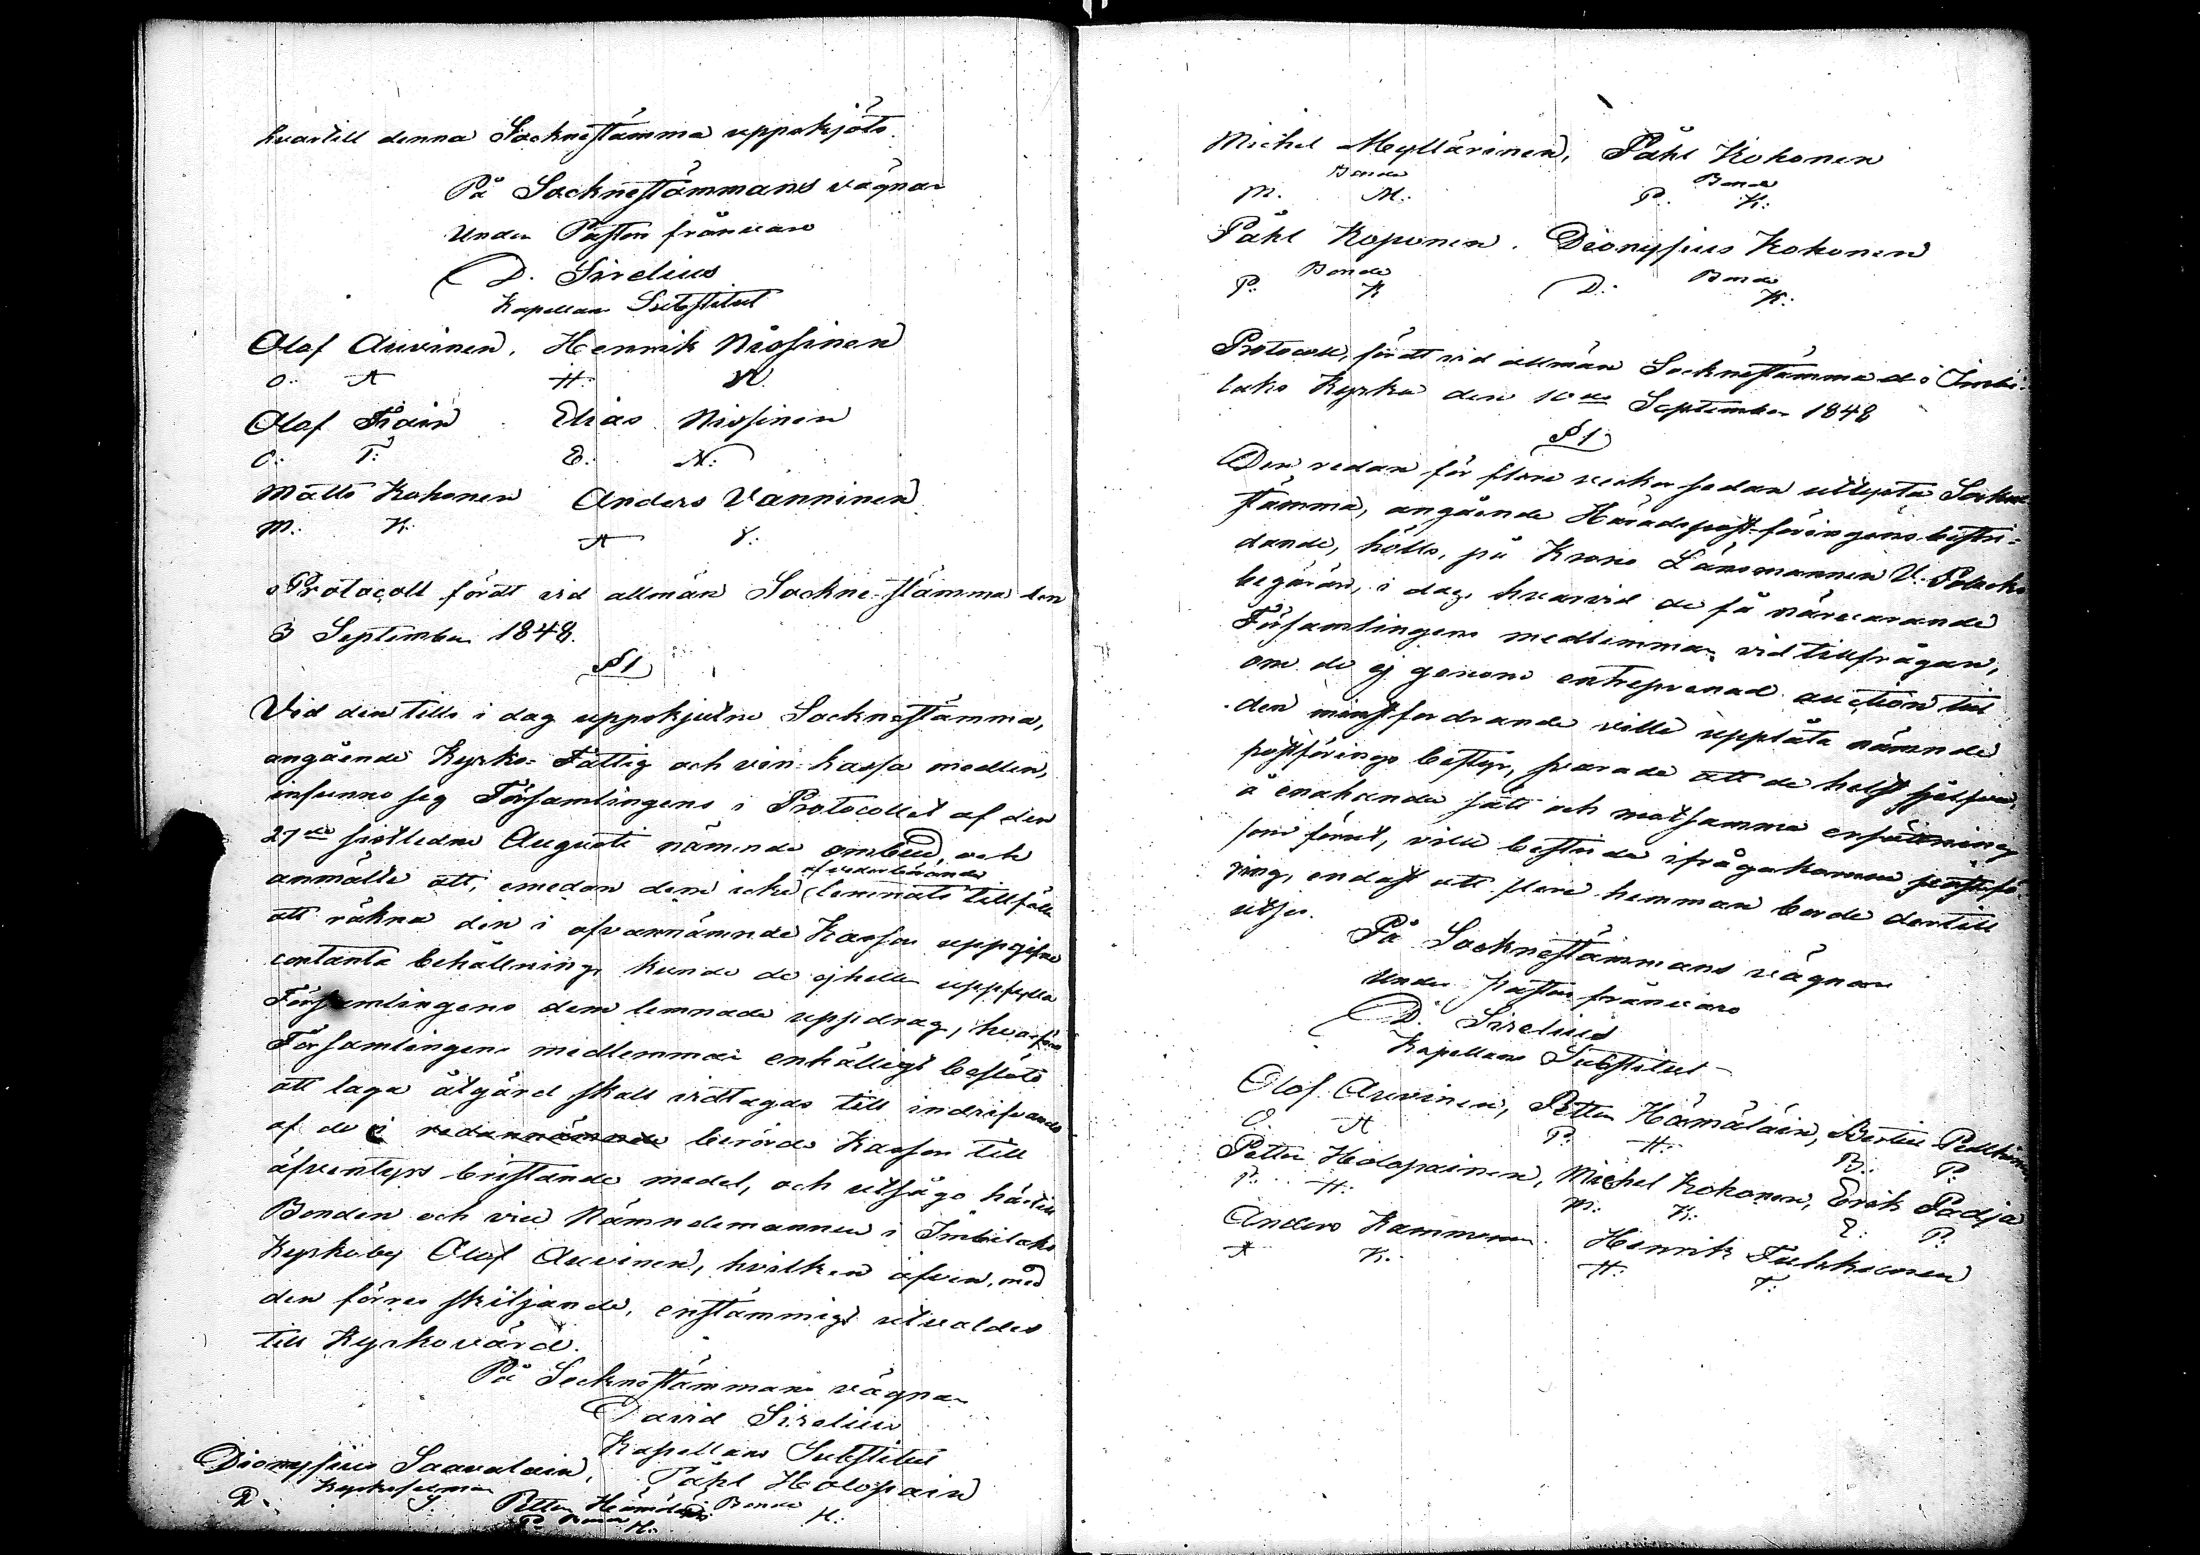 hvartill denna Sockneſtämma uppskjöts.
På Sockneſtämmans vägnar
Under Paſtors frånvaro
D. Sirelius
Kapellans Subſtitut
Olof Auvinen, Henrik Nissinen
O: A H: N.
Olof Tiain Elias Nissinen
O: T: E: N:
Matts Kokonen Anders Vanninen
M: K: A V:
Protocoll fördt vid allmän Sockne-ſtämma den
3 September 1848.
§ 1
Vid den tills i dag uppskjutne Sockneſtämma,
angående Kyrko- Fattig och vin-kassa medlen,
infunno sig Församlingens i Protocollet af den
27de sistledne Augusti nämnde ombud, och
af vederbörande
anmälte att, emedan dem icke lemnats tillfälle
att räkna den i ofvannämnde Kassor uppgifne
contanta behållning, kunde de ejheller uppfylla
Församlingens dem lemnade uppdrag, hvarföre
Församlingens medlemmar enhälligt beslöto
att laga åtgärd skall vidtagas till indrifvande
af de i redannämnde berörde Kassor till
äfventyrs bristande medel, och utsågo härtill
Bonden och vice Nämndemannen i Imbilaks
Kyrkoby Olof Auvinen, hvilken äfven, med
den förres skiljande, enstämmigt utvaldes
till Kyrkovärd.
På Sockneſtämmans vägnar
David Sirelius
Kapellans Subſtitut
Dionysius Saavalain, Påhl Holopain
D. S. Bonde H:
Petter Hämäläin
P. Bonde H:
Michel Myllärinen, Påhl Kokonen
Bonde Bonde
M. M: P. K:
Påhl Koponen. Dionysius Kokonen
Bonde Bonde
P: K D: K:
Protocoll, fördt vid allmän Sockneſtämma i Imbi-
laks Kyrka den 10de September 1848
§ 1
Den redan för flere veckor sedan utlysta Sockne
ſtämma, angående Häradspost-föringens bestri-
dande, hölls, på Krono Länsmannen V.
begäran, i dag, hvarvid de få närvarande
Församlingens medlemmar, vid tillfrågan,
om de ej genom entreprenad auction till
den minstfordrande ville upplåta nämnde
postförings bestyr, svarade att de helst sjelfve,
å enahanda sätt och mot samma ersättning
som förut, ville bestrida ifrågakomne postfö-
ring, endast att flere hemman borde dertill
utses.
På Sockneſtämmans vägnar
Under Pastors frånvaro
D. Sirelius
Kapellans Subſtitut
Olof Auvinen, Petter Hämäläin, Bertil
O A P. H: B: P:
Petter Holopainen, Michel Kokonen, Erik Padja
P. H: M: K: E: P:
Anders Kammonen. Henrik Turkkonen
A K: H: T: